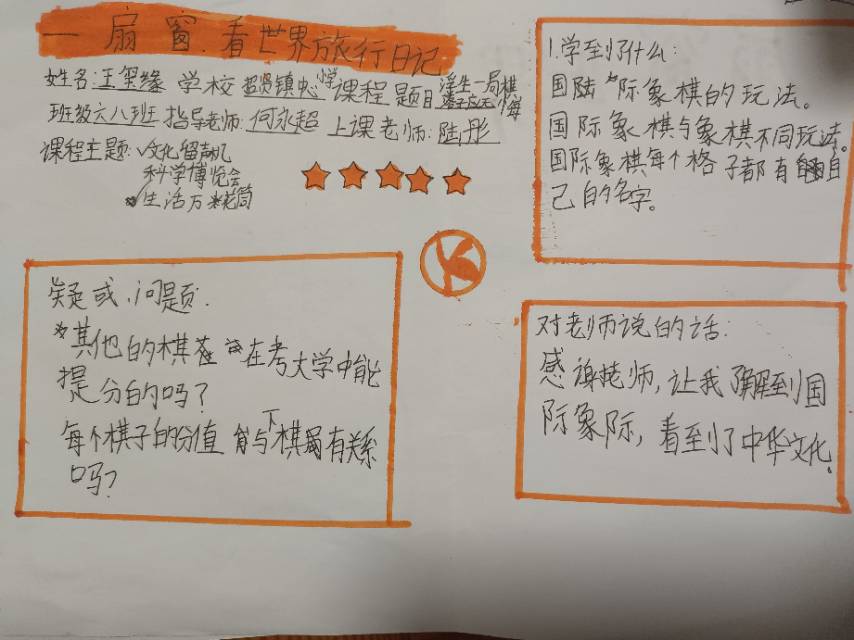 一扇窗.看世界旅行日记
姓名:王玺缘 学校 超贤镇中心小学 课程题目 浮生一局棋
落子应无悔
班级六八班 指导老师:何永超 上课老师:陆彤
课程主题:√文化留声机
科学博览会
生活万花筒
1.学到了什么:
国陆 际象棋的玩法。
国际象棋与象棋不同玩法。
国际象棋每个格子都有自
己的名字。
疑或问题.
其他的棋 在考大学中能
提分的吗?
每个棋子的份值 与下棋 有关系
吗?
对老师说的话:
感谢老师,让我了解到国
际象际,看到了中华文化.